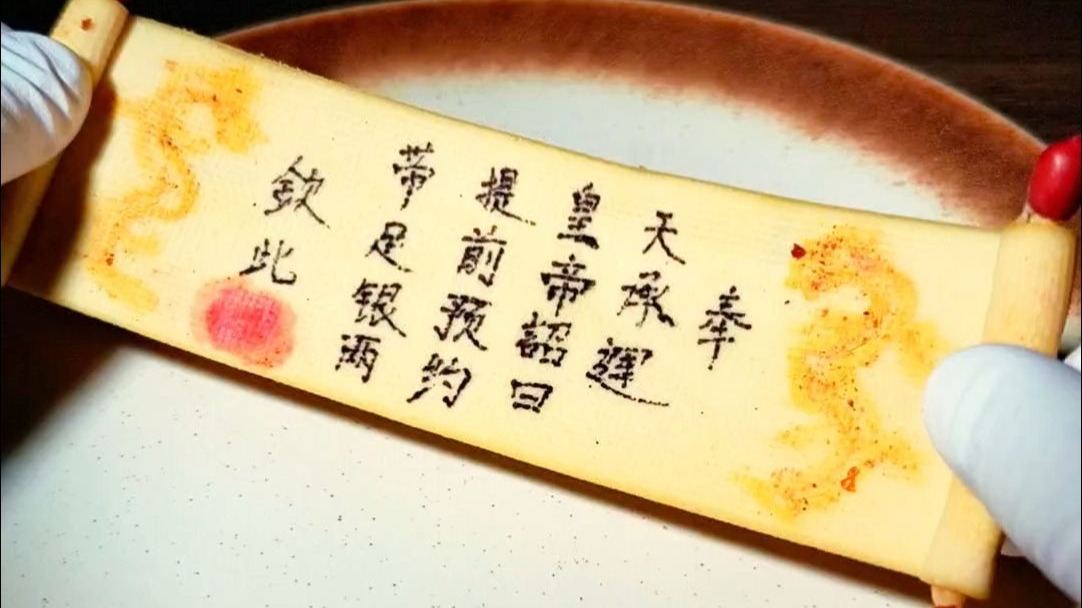 奉
天承運
皇帝詔曰
提前预约
带足银两
欽此